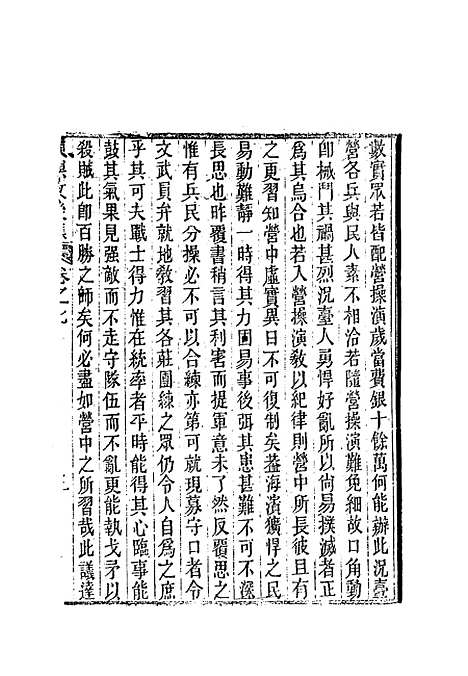 數實眾若皆配營操演歲當費銀十餘萬何能辦此況臺
營各兵與民人素不相洽若隨營操演難免細故口角動
卽械鬥其禍甚烈況臺人勇悍好亂所以尙易撲滅者正
爲其烏合也若入營操演教以紀律則營中所長彼且有
之更習知營中虛實異日不可復制矣葢海濵獷悍之民
易動難靜一時得其力固易事後弭其患甚難不可不深
長思也昨覆書稍言其利害而提軍意未了然反覆思之
惟有兵民分操必不可以合練亦第可就現募守口者令
文武員弁就地敎習其各莊團練之眾仍令人自爲之庶
乎其可夫戰士得力惟在統率者平時能得其心臨事能
鼓其氣果見强敵而不走守隊伍而不亂更能執戈矛以
殺賊此卽百勝之師矣何必盡如營中之所習哉此議達
卷之七